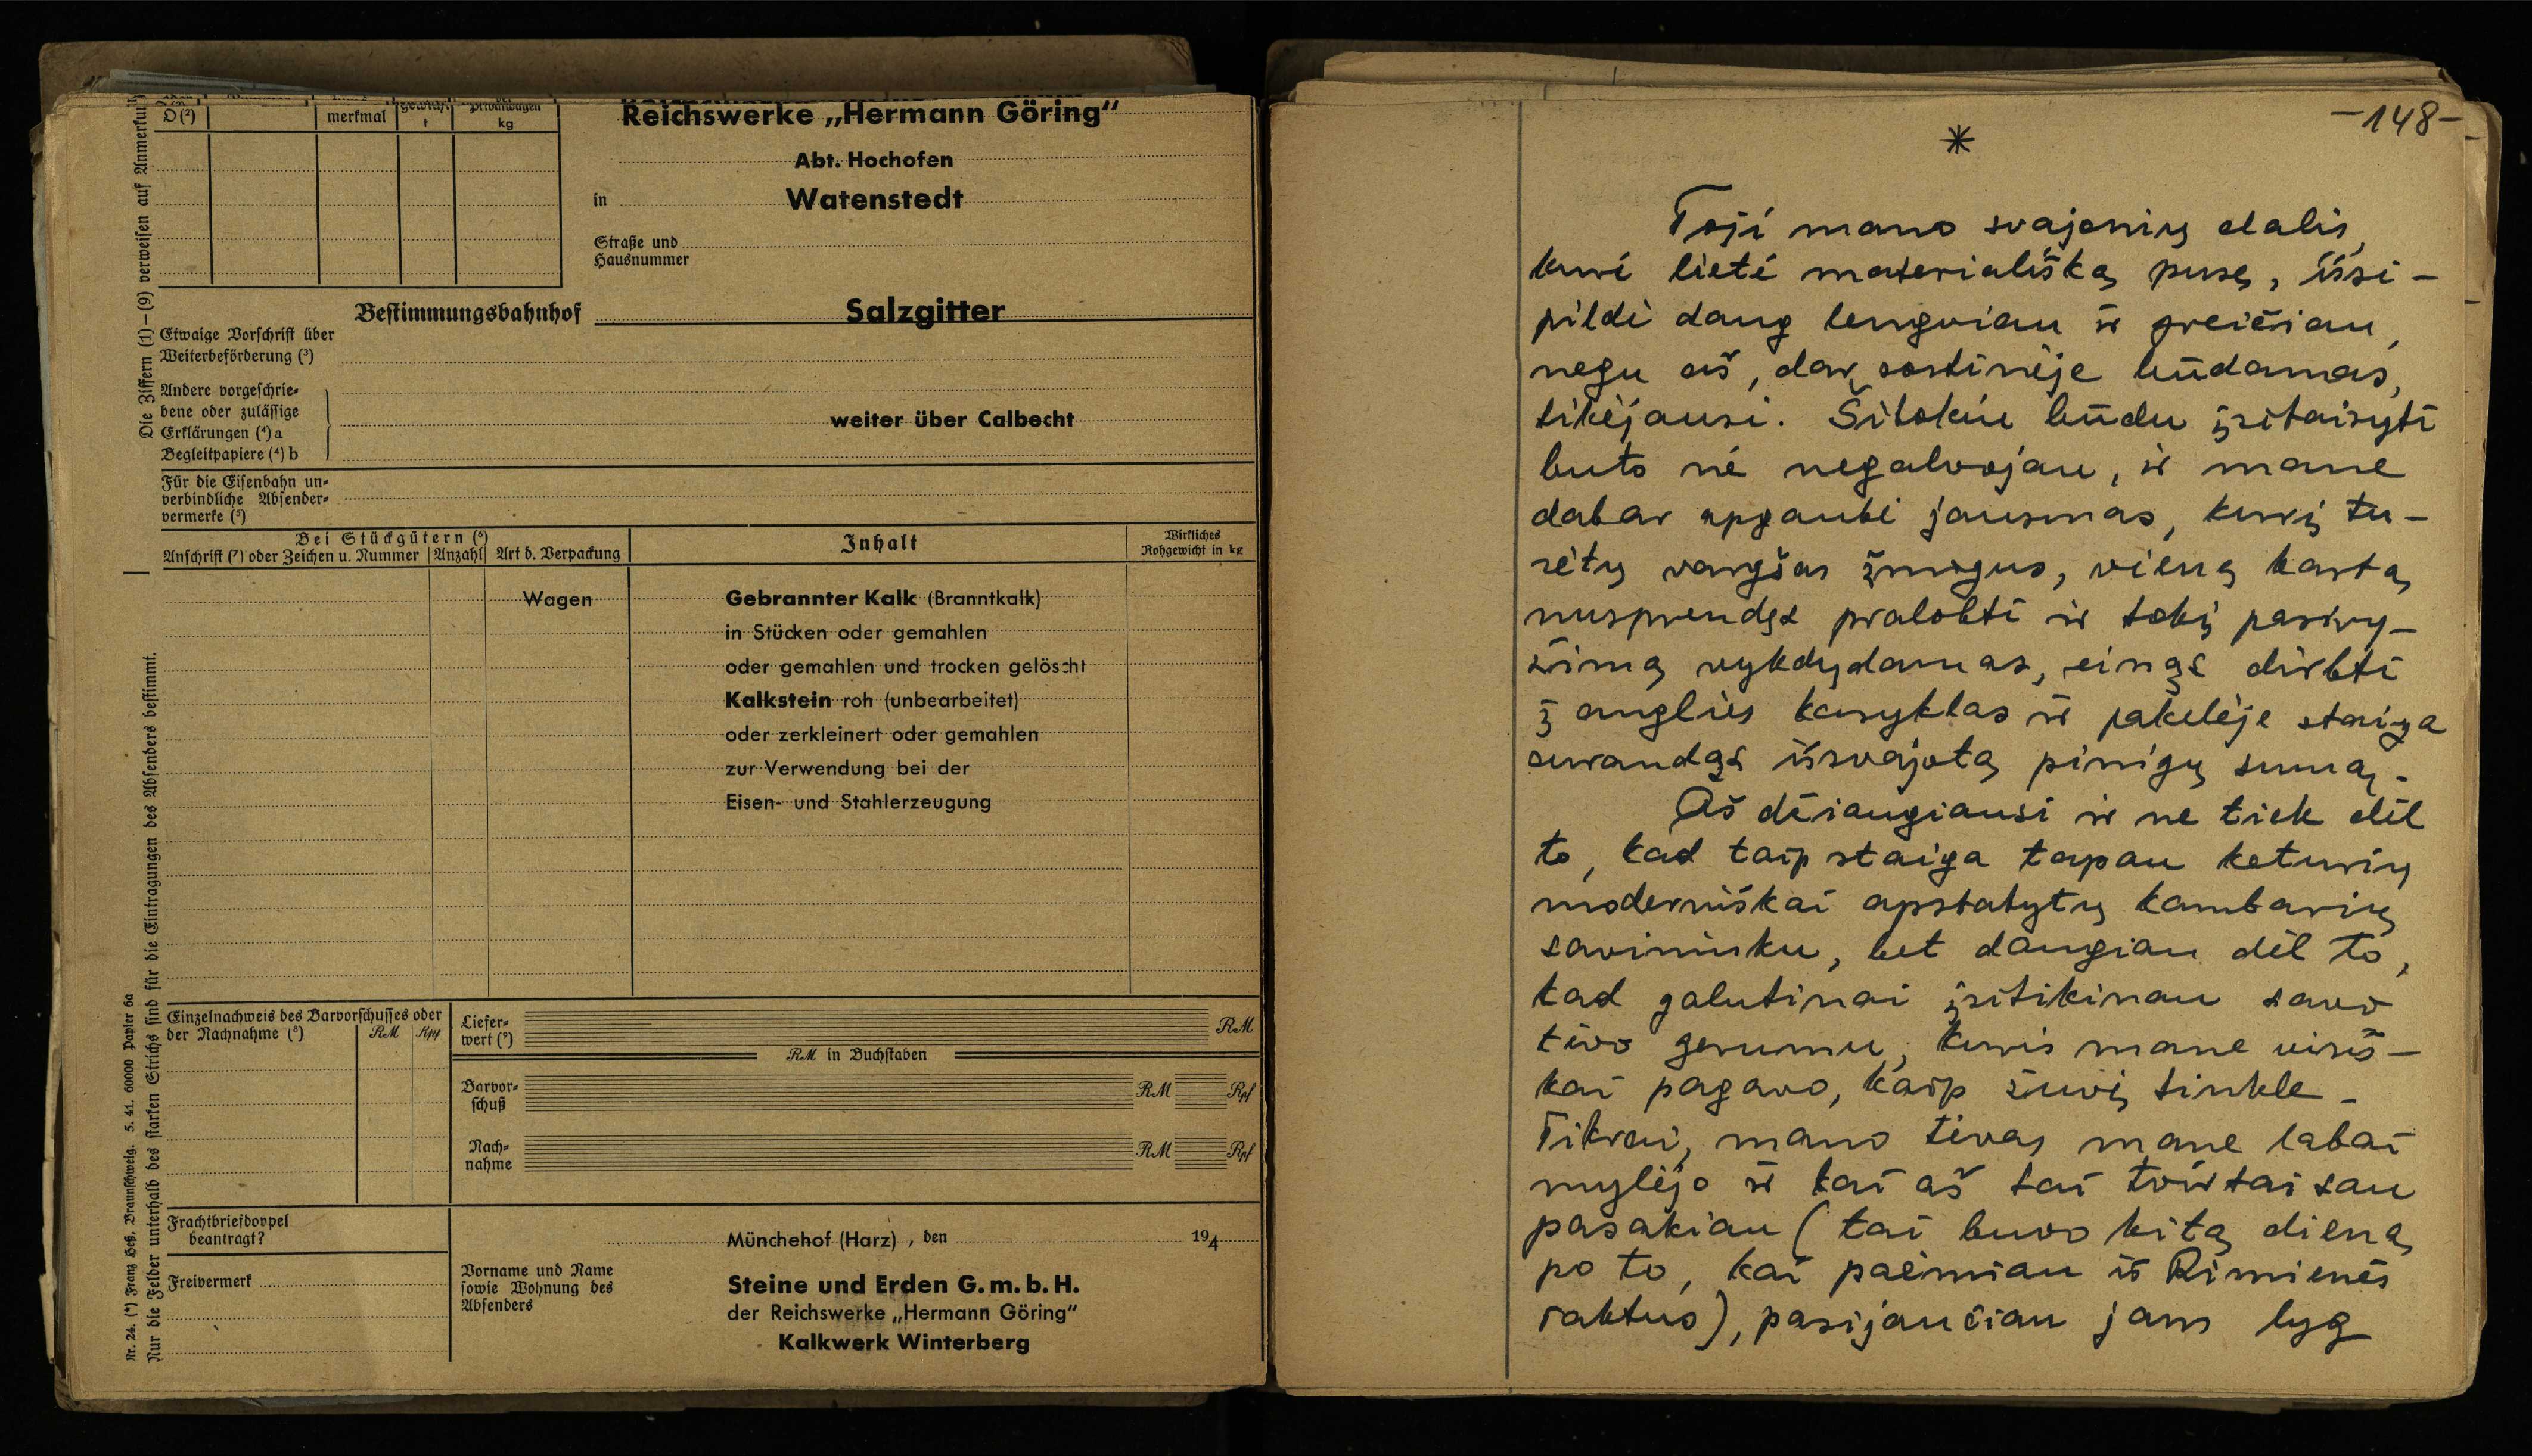 D(²)
merkmal
t
kg
Reichswerke „Hermann Göring“
Abt. Hochofen
in Watenstedt
Straße und
Hausnummer
Bestimmungsbahnhof Salzgitter
Etwaige Vorschrift über
Weiterbeförderung (³)
Andere vorgeschrie-
bene oder zulässige
Erklärungen (⁴) a
Begleitpapiere (⁴) b
weiter über Calbecht
Für die Eisenbahn un-
verbindliche Absender-
vermerke (⁵)
Bei Stückgütern (⁶)
Anschrift (⁷) oder Zeichen u. Nummer
Anzahl
Art d. Verpackung
Inhalt
Wirkliches
Rohgewicht in kg
Wagen
Gebrannter Kalk (Branntkalk)
in Stücken oder gemahlen
oder gemahlen und trocken gelöscht
Kalkstein roh (unbearbeitet)
oder zerkleinert oder gemahlen
zur Verwendung bei der
Eisen- und Stahlerzeugung
Einzelnachweis des Barvorschusses oder
der Nachnahme (⁸)
RM
Rpf
Liefer-
wert (⁹)
RM
RM in Buchstaben
Barvor-
schuß
RM
Rpf
Nach-
nahme
RM
Rpf
Frachtbriefdoppel
beantragt?
Freivermerk
Münchehof (Harz), den 194
Vorname und Name
sowie Wohnung des
Absenders
Steine und Erden G. m. b. H.
der Reichswerke „Hermann Göring“
Kalkwerk Winterberg
Die Ziffern (1)–(9) verweisen auf
Nur die Felder unterhalb des starken Strichs sind für die Eintragungen des Absenders bestimmt.
Nr. 24. (*) Franz Heß, Braunschweig. 5. 41. 60000 Papier 6a
–148–
*
Toji mano svajonių dalis,
kuri lietė materiališką pusę, išsi-
pildė daug lengviau ir greičiau,
negu aš, dar sostinėje būdamas,
tikėjausi. Šitokiu būdu įsitaisyti
buto nė negalvojau, ir mane
dabar apgaubė jausmas, kurį tu-
rėtų vargšas žmogus, vieną kartą
nusprendęs pralobti ir tokį pasiry-
žimą vykdydamas, einąs dirbti
į anglies kasyklas ir pakelėje staiga
surandąs išsvajotą pinigų sumą.
Aš džiaugiausi ir ne tiek dėl
to, kad taip staiga tapau keturių
moderniškai apstatytų kambarių
savininku, bet daugiau dėl to,
kad galutinai įsitikinau savo
tėvo gerumu, kuris mane viriš-
kai pagavo, kaip žuvį tinkle.
Tikrai, mano tėvas mane labai
mylėjo ir kai aš tai tvirtai sau
pasakiau (tai buvo kitą dieną
po to, kai paėmiau iš Rimienės
raktus), pasijaučiau jam lyg